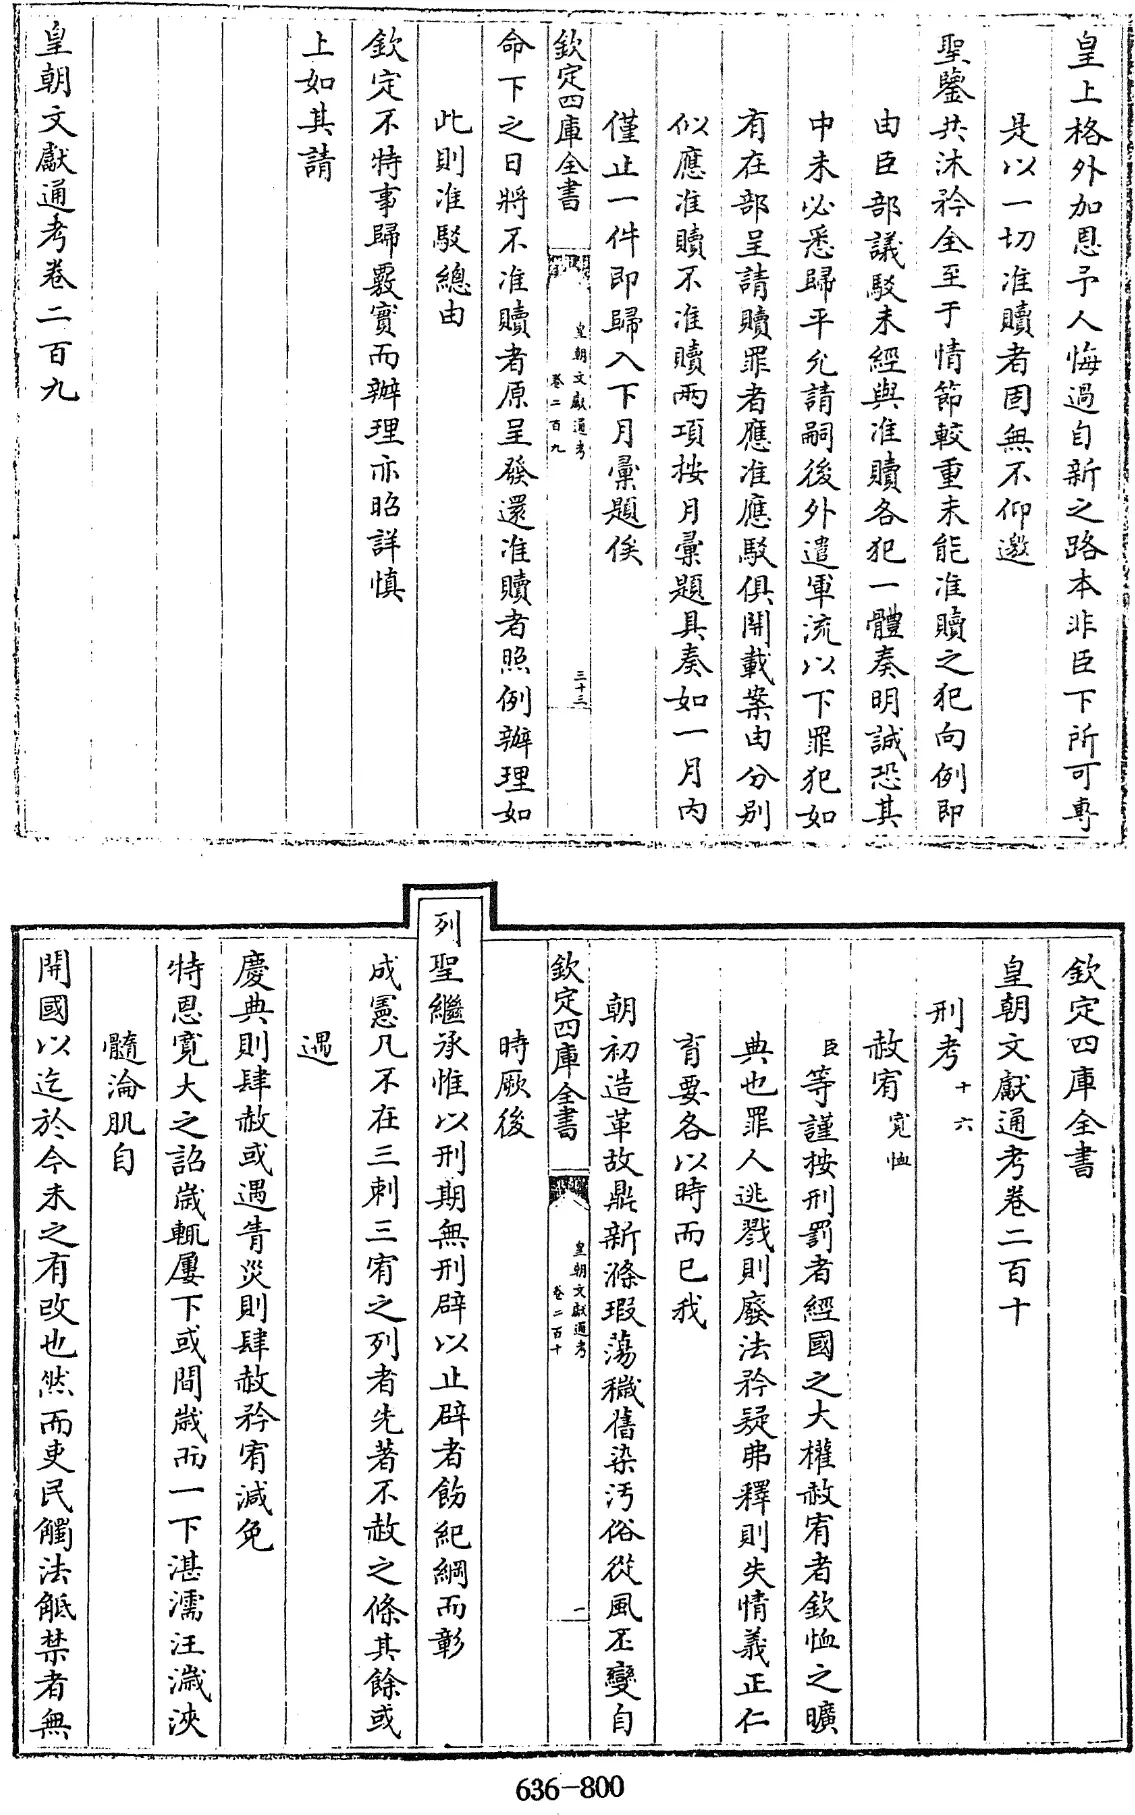 皇上格外加恩予人悔過自新之路本非臣下所可專
是以一切准贖者固無不仰邀
聖鑒共沐矜全至于情節較重未能准贖之犯向例即
由臣部議駁未經與准贖各犯一體奏明誠恐其
中未必悉歸平允請嗣後外遣軍流以下罪犯如
有在部呈請贖罪者應准應駁俱開載案由分別
似應准贖不准贖兩項按月彚題具奏如一月內
僅止一件即歸入下月彚題俟
欽定四庫全書
皇朝文獻通考
卷二百九
三十三
命下之日將不准贖者原呈發還准贖者照例辦理如
此則准駁總由
欽定不特事歸覈實而辦理亦昭詳慎
上如其請
皇朝文獻通考卷二百九
欽定四庫全書
皇朝文獻通考卷二百十
刑考十六
赦宥寬恤
臣等謹按刑罰者經國之大權赦宥者欽恤之曠
典也罪人逃戮則廢法矜疑弗釋則失情義正仁
育要各以時而已我
朝初造革故鼎新滌瑕蕩穢舊染汚俗從風丕變自
欽定四庫全書
皇朝文獻通考
卷二百十
一
時厥後
列聖繼承惟以刑期無刑辟以止辟者飭紀綱而彰
成憲凡不在三刺三宥之列者先著不赦之條其餘或
遇
慶典則肆赦或遇眚災則肆赦矜宥減免
特恩寛大之詔歳輒屢下或間歳而一下湛濡汪濊浹
髓淪肌自
開國以迄於今未之有改也然而吏民觸法觝禁者無
636-800